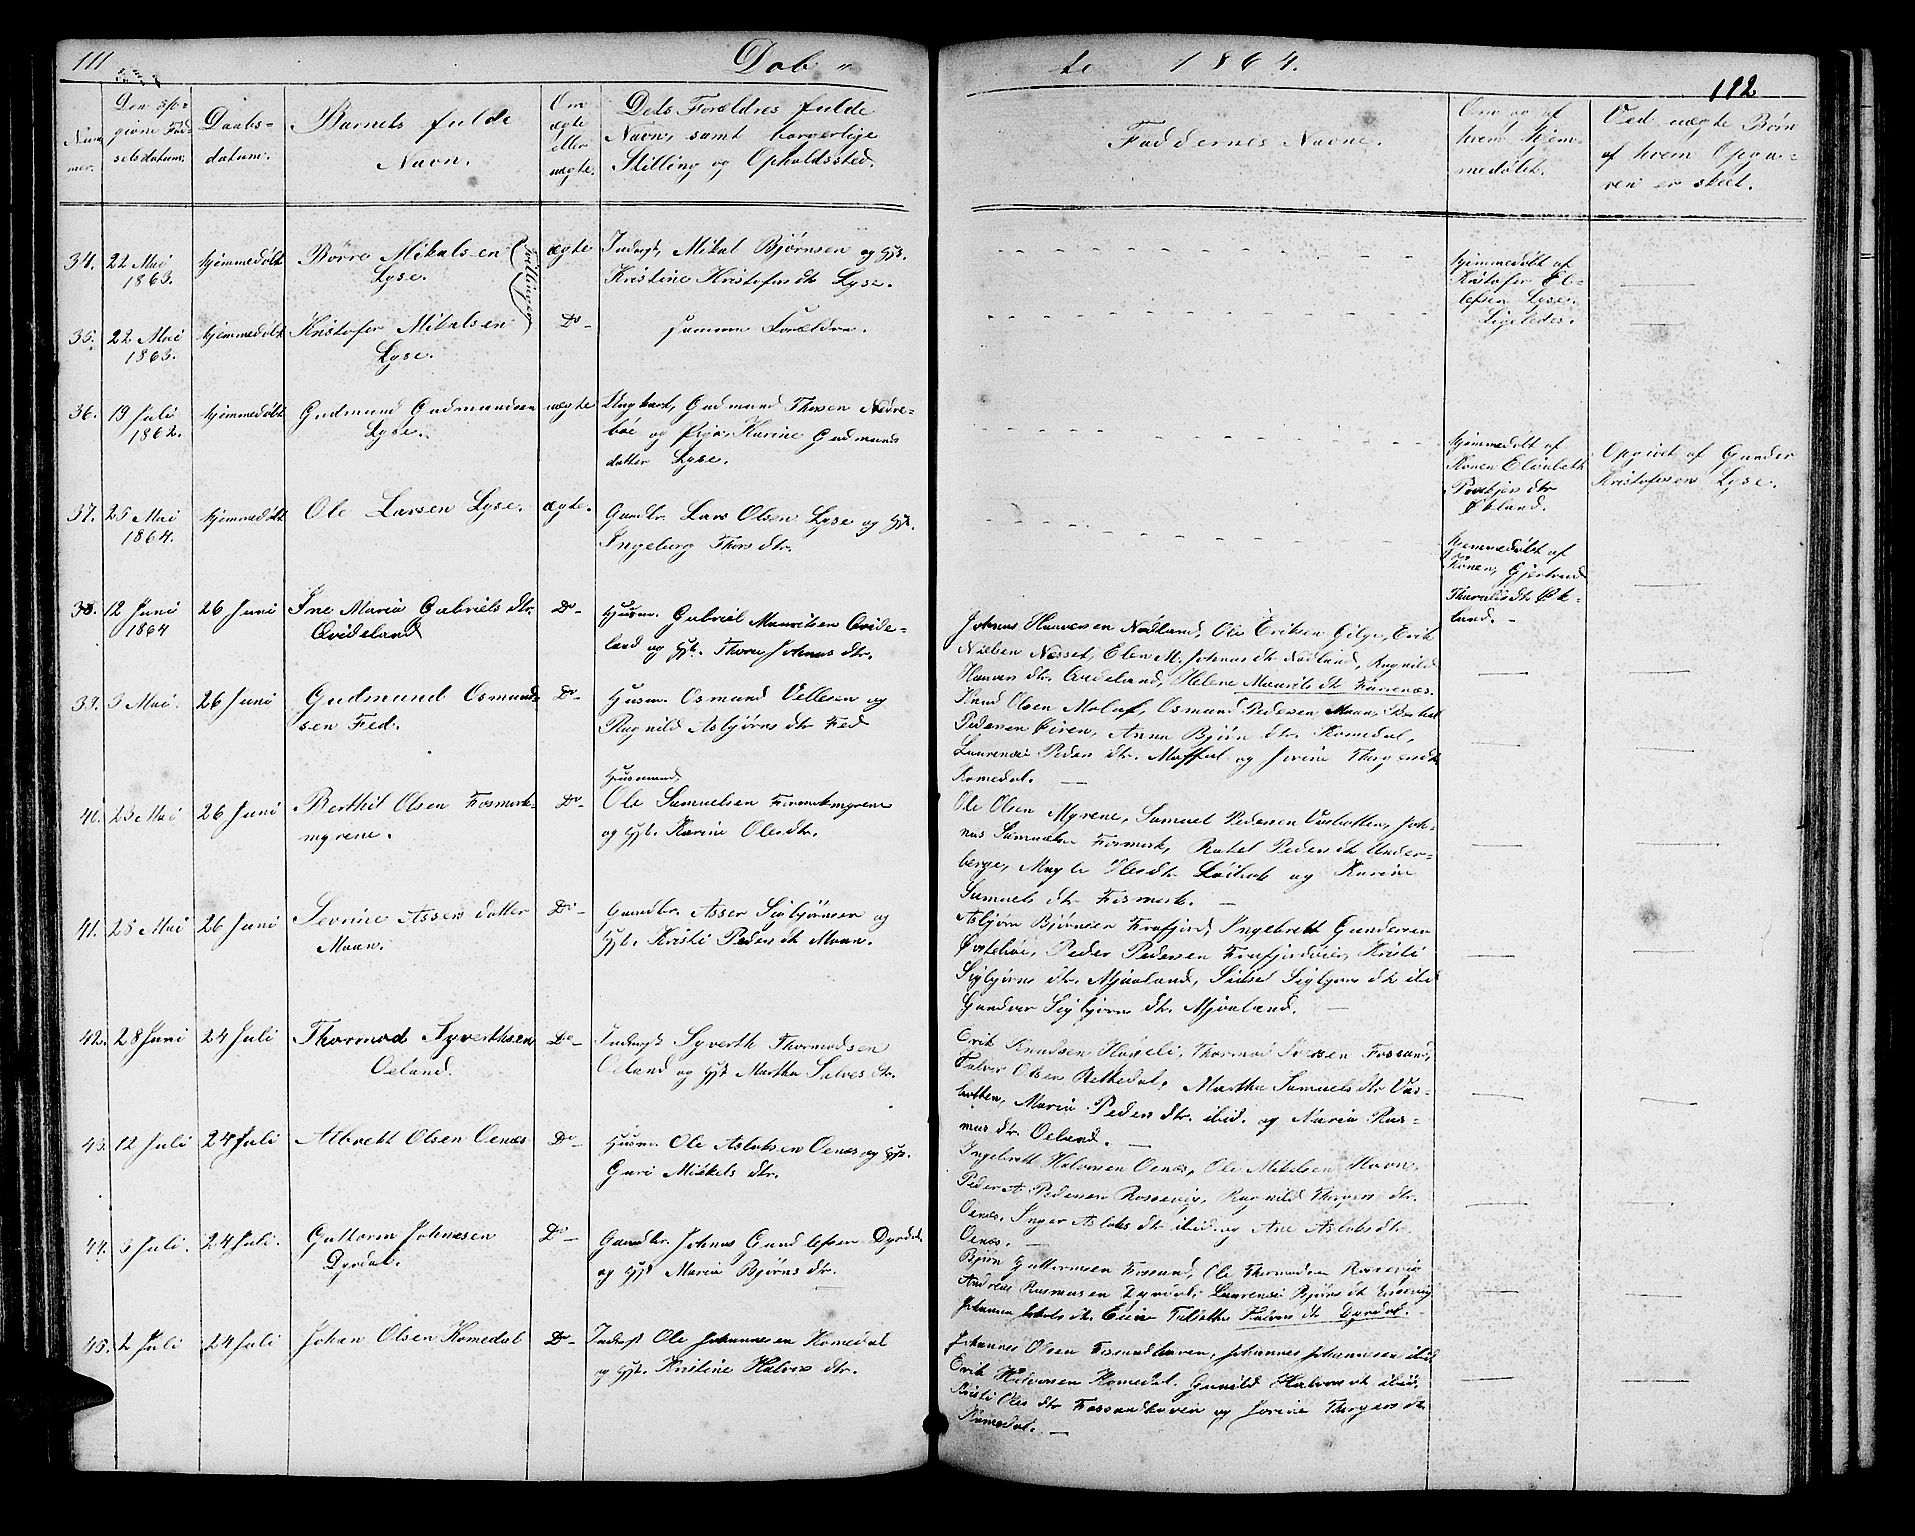 111
Døb
te 1864.
112
Num
mer.
Den op-
givne Fød-
selsdatum.
Daabs-
datum.
Barnets fulde
Navn.
Om
ægte
eller
uægte.
Dets Forældres fulde
Navn, samt borgerlige
Stilling og Opholdssted.
Faddernes Navne.
Om og af
hvem hjem-
medøbt.
Ved uægte Børn
af hvem Opga-
ven er skeet.
34. 22 Mai
1863.
hjemmedøbt
Børre Mikalsen
Lyse.
Tvillinger
ægte
Inderst, Mikal Bjørnsen og Hst.
Kristine Kristofersdtr Lyse.
hjemmedøbt af
Kristofer El-
lefsen Lyse.
35. 22 Mai
1863.
hjemmedøbt
Kristofer Mikalsen
Lyse.
Do
samme Forældre.
Ligeledes.
36. 19 Juli
1862.
hjemmedøbt
Gudmund Gudmundsen
Lyse.
uægte
Ungkarl, Gudmund Thosen Nedre-
bøe og Pige Karine Gudmunds
datter Lyse.
hjemmedøbt af
Konen Elisabeth
Økland.
Opgivet af Gunder
Kristofersen Lyse.
37. 25 Mai
1864.
hjemmedøbt
Ole Larsen Lyse.
ægte.
Gaardbr. Lars Olsen Lyse og Hst.
Ingeborg Thorsdtr.
hjemmedøbt af
Konen, Gjertrud
Thoralisdtr Øk-
land.
38. 12 Juni
1864
26 Juni
Ine Maria Gabrielsdtr.
Qvideland
Do
Husm. Gabriel Mauritsen Qvide-
land og Hst. Thora Johnasdtr.
Johnas Haavorsen Nødland, Ole Eriksen Gilje, Erik
Nielsen Nesset, Elen M. Johnasdtr Nødland, Ragnild
Hansen dtr. Qvideland, Helene Mauritsdtr Fossenæs.
39. 3 Mai.
26 Juni
Gudmund Osmund-
sen Fed.
Do
Husm. Osmund Vellesen og
Ragnild Asbjørnsdtr Fed
Knud Olsen Molaf, Osmund Pedersen Maan, Berthel
Pedersen Eiren, Anna Bjørndtr. Komedal,
Laurense Pedersdtr. Maffal og Serine Thorgersdtr
Komedal.
40. 23 Mai
26 Juni
Berthil Olsen Fosmork-
myrene.
Do
Husmand,
Ole Samuelsen Fosmorkmyrene
og Hst. Karine Olesdtr.
Ole Olsen Myrene, Samuel Pedersen Vasbotten, Joh-
nas Samuelsen Fosmork, Rakel Pedersdtr Under-
berge, Magle Olesdtr Løtrek og Karine
Samuelsdtr Fosmork.
41. 25 Mai
26 Juni
Sevrine Assersdatter
Maan.
Do
Gaardbr. Asser Sigbjørnsen og
Hst. Kristi Pedersdtr Maan.
Asbjørn Bjørnsen Frafjord, Ingebrett Gundersen
Østebøe, Peder Pedersen Frafjordeie, Kristi
Sigbjørnsdtr. Mjaaland, Sidsel Sigbjørnsdtr ibid
Gundver Sigbjørnsdtr. Mjaaland.
42. 28 Juni
24 Juli
Thormod Syverthsen
Oeland.
Do
Inderst Syverth Thormodsen
Oeland og Hst Martha Salvesdtr.
Erik Knudsen Høgeli, Thormod Svensen Fossand,
Salver Olsen Rettedal, Martha Samuelsdtr Vas-
botten, Maria Pedersdtr. ibid. og Maria Ras-
musdtr. Oeland.
43. 12 Juli
24 Juli
Albrekt Olsen Oenæs
Do
Husm. Ole Aslaksen Oenæs og Hst.
Guri Mikkelsdtr.
Ingebrett Halvorsen Oenæs, Ole Mikelsen Haavn,
Peder A. Pedersen Rossevig, Ragnild Thorgersdtr.
Oenæs, Inger Aslaksdtr ibid. og Ane Aslaksdtr.
Oenæs.
44. 3 Juli.
24 Juli.
Guttorm Johnasen
Dyrdal.
Do
Gaardbr. Johnas Gundlefsen Dyrdal
og Hst Maria Bjørnsdtr.
Bjørn Guttormsen Fossand, Ole Thormodsen Rossevig
Andreas Rasmusen Dyrdal, Laurense Bjørnsdtr Rossevig
Johanna Jakobsdtr Eiene Talette Salvesdtr Dyrdal.
45. 2 Juli
24 Juli
Johan Olsen Komedal
Do
Inderst Ole Johannesen Komedal
og Hst. Kristine Halvorsdtr.
Johannes Olsen Fossandhaven, Johannes Johannesen ibid
Erik Halvorsen Komedal. Gunild Halvorsdt ibid,
Kristi Olesdtr Fossandhaven og Serine Thorgersdtr
Komedal.